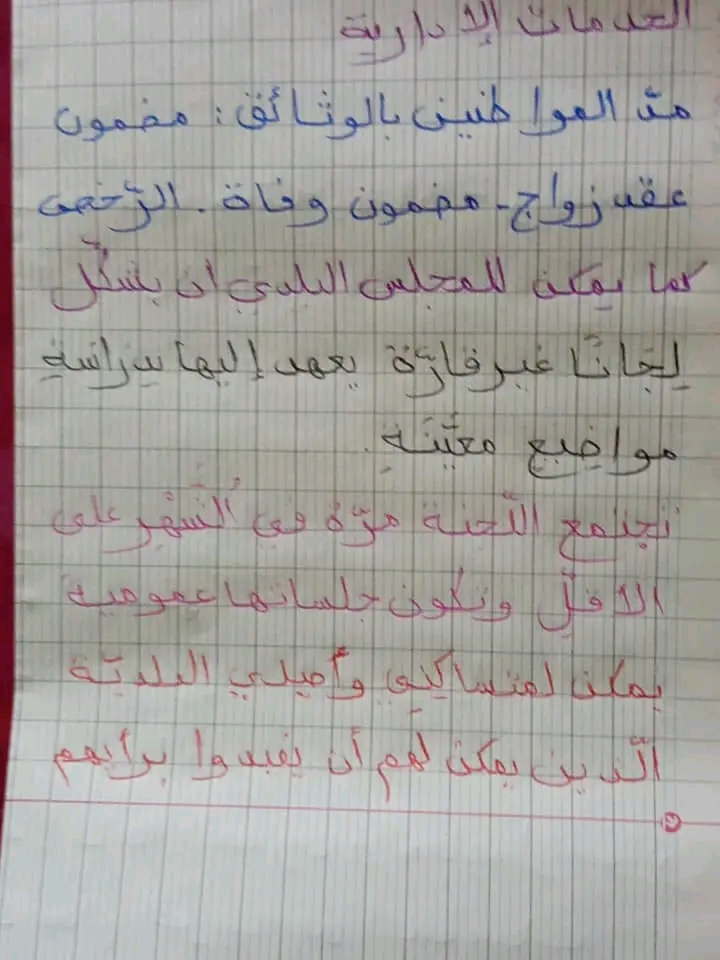 الخدمات الإدارية
مدّ المواطنين بالوثائق: مضمون
عقد زواج - مضمون وفاة. الرّخص
كما يمكن للمجلس البلدي ان يشكّل
لِجَانًا غير قارّة يعهد إليها بدراسةِ
مواضيع معيّنَةِ.
تجتمع اللّجنة مرّة في الشّهر على
الاقلّ وتكون جلساتها عمومية
يمكن لمتساكِني وأصيلي البلديّة
الّذين يمكن لهم أن يفيدوا برأيهم